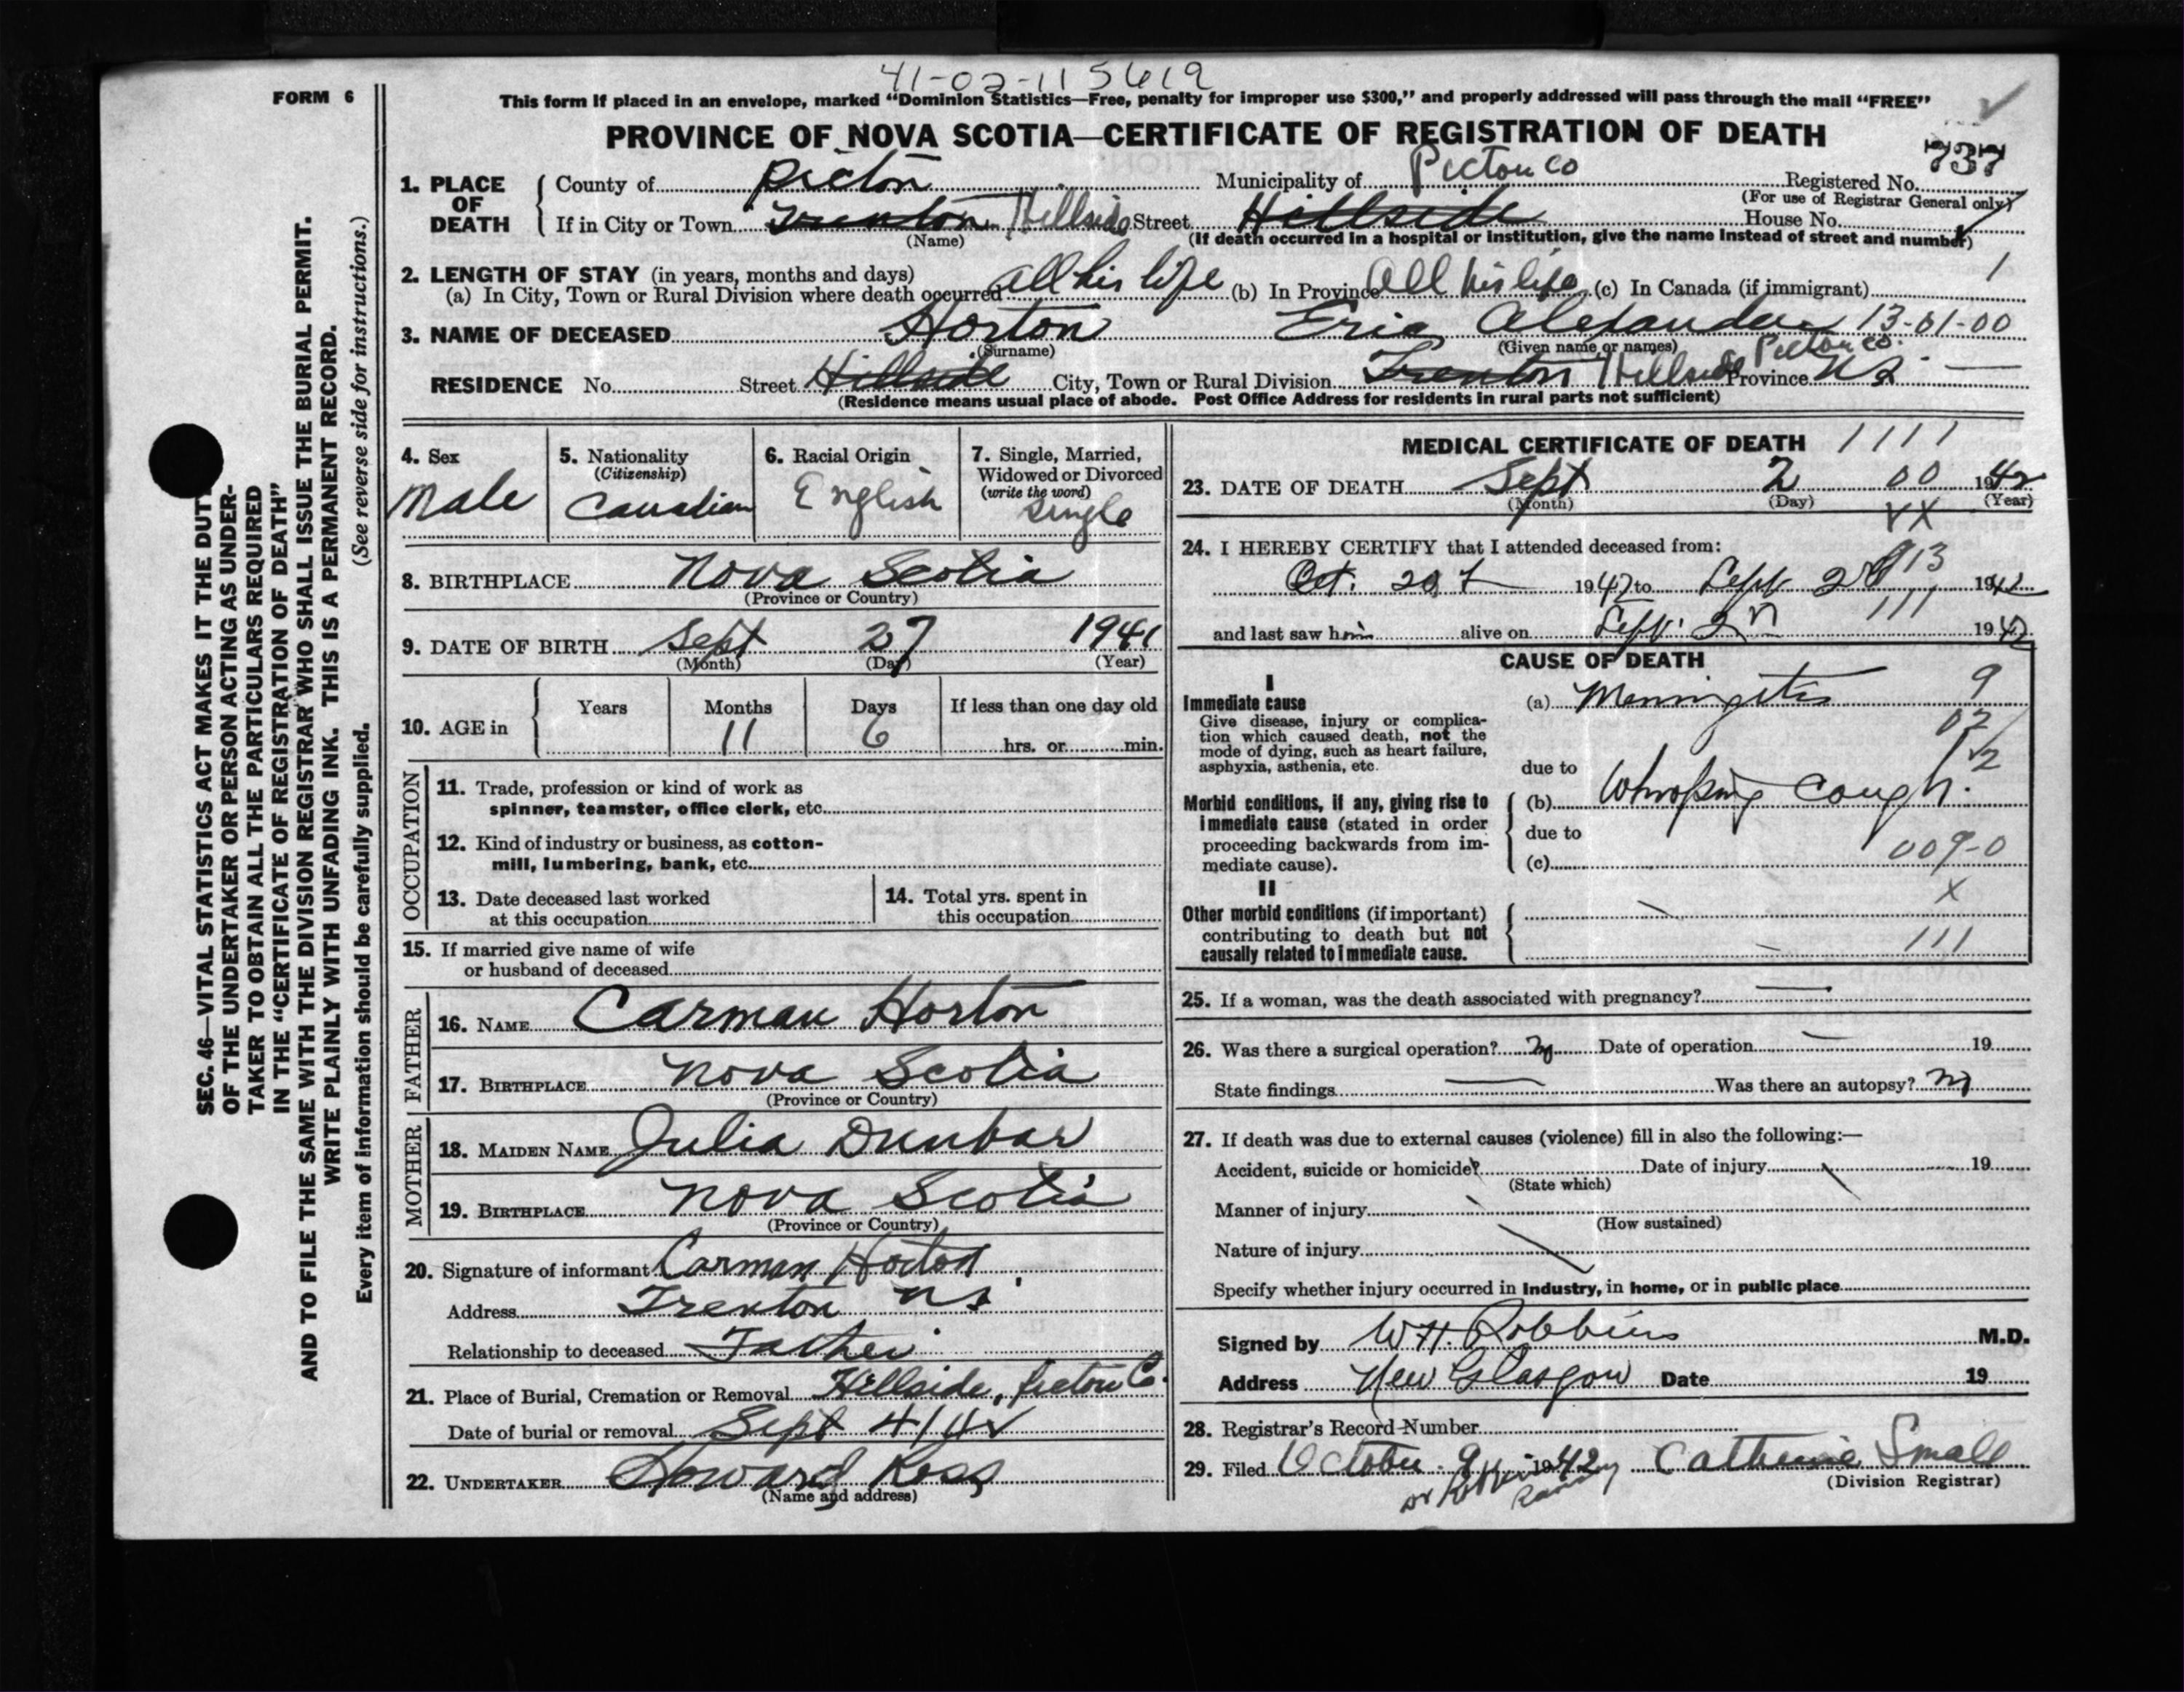 41-02-115619
FORM 6
This form if placed in an envelope, marked “Dominion Statistics—Free, penalty for improper use $300,” and properly addressed will pass through the mail “FREE”
PROVINCE OF NOVA SCOTIA—CERTIFICATE OF REGISTRATION OF DEATH
737
1. PLACE OF DEATH
County of Pictou Municipality of Pictou Co Registered No.
(For use of Registrar General only)
If in City or Town Trenton Hillside Street Hillside House No.
(Name) (If death occurred in a hospital or institution, give the name instead of street and number)
2. LENGTH OF STAY (in years, months and days)
(a) In City, Town or Rural Division where death occurred all his life (b) In Province All his life (c) In Canada (if immigrant) 1
3. NAME OF DECEASED Horton Eric Alexander 13-01-00
(Surname) (Given name or names)
RESIDENCE No. Street Hillside City, Town or Rural Division Trenton Hillside Pictou Co. Province N S
(Residence means usual place of abode. Post Office Address for residents in rural parts not sufficient)
4. Sex
Male
5. Nationality
(Citizenship)
Canadian
6. Racial Origin
English
7. Single, Married,
Widowed or Divorced
(write the word)
Single
8. BIRTHPLACE Nova Scotia
(Province or Country)
9. DATE OF BIRTH Sept 27 1941
(Month) (Day) (Year)
10. AGE in
Years Months Days If less than one day old
11 6 hrs. or min.
OCCUPATION
11. Trade, profession or kind of work as
spinner, teamster, office clerk, etc.
12. Kind of industry or business, as cotton-
mill, lumbering, bank, etc.
13. Date deceased last worked
at this occupation
14. Total yrs. spent in
this occupation
15. If married give name of wife
or husband of deceased
FATHER
16. NAME Carman Horton
17. BIRTHPLACE Nova Scotia
(Province or Country)
MOTHER
18. MAIDEN NAME Julia Dunbar
19. BIRTHPLACE Nova Scotia
(Province or Country)
20. Signature of informant Carman Horton
Address Trenton N S
Relationship to deceased Father
21. Place of Burial, Cremation or Removal Hillside, Pictou Co.
Date of burial or removal Sept 4/42
22. UNDERTAKER Howard Ross
(Name and address)
MEDICAL CERTIFICATE OF DEATH 1111
23. DATE OF DEATH Sept 2 00 1942
(Month) (Day) (Year)
24. I HEREBY CERTIFY that I attended deceased from:
Oct. 20 1942 to Sept 2 1942
and last saw him alive on Sept. 2 1942
CAUSE OF DEATH
I
Immediate cause
Give disease, injury or complica-
tion which caused death, not the
mode of dying, such as heart failure,
asphyxia, asthenia, etc.
(a) Meningitis 9
due to
Morbid conditions, if any, giving rise to
immediate cause (stated in order
proceeding backwards from im-
mediate cause).
(b) Whooping Cough.
due to
(c) 009-0
II
Other morbid conditions (if important)
contributing to death but not
causally related to immediate cause.
X
111
25. If a woman, was the death associated with pregnancy?
26. Was there a surgical operation? No Date of operation 19
State findings Was there an autopsy? No
27. If death was due to external causes (violence) fill in also the following:—
Accident, suicide or homicide? Date of injury 19
(State which)
Manner of injury
(How sustained)
Nature of injury
Specify whether injury occurred in industry, in home, or in public place
Signed by W H. Robbins M.D.
Address New Glasgow Date 19
28. Registrar's Record Number
29. Filed October 9 1942 Catherine Small
(Division Registrar)
SEC. 46—VITAL STATISTICS ACT MAKES IT THE DUTY
OF THE UNDERTAKER OR PERSON ACTING AS UNDER-
TAKER TO OBTAIN ALL THE PARTICULARS REQUIRED
IN THE “CERTIFICATE OF REGISTRATION OF DEATH”
AND TO FILE THE SAME WITH THE DIVISION REGISTRAR WHO SHALL ISSUE THE BURIAL PERMIT.
WRITE PLAINLY WITH UNFADING INK. THIS IS A PERMANENT RECORD.
Every item of information should be carefully supplied. (See reverse side for instructions.)